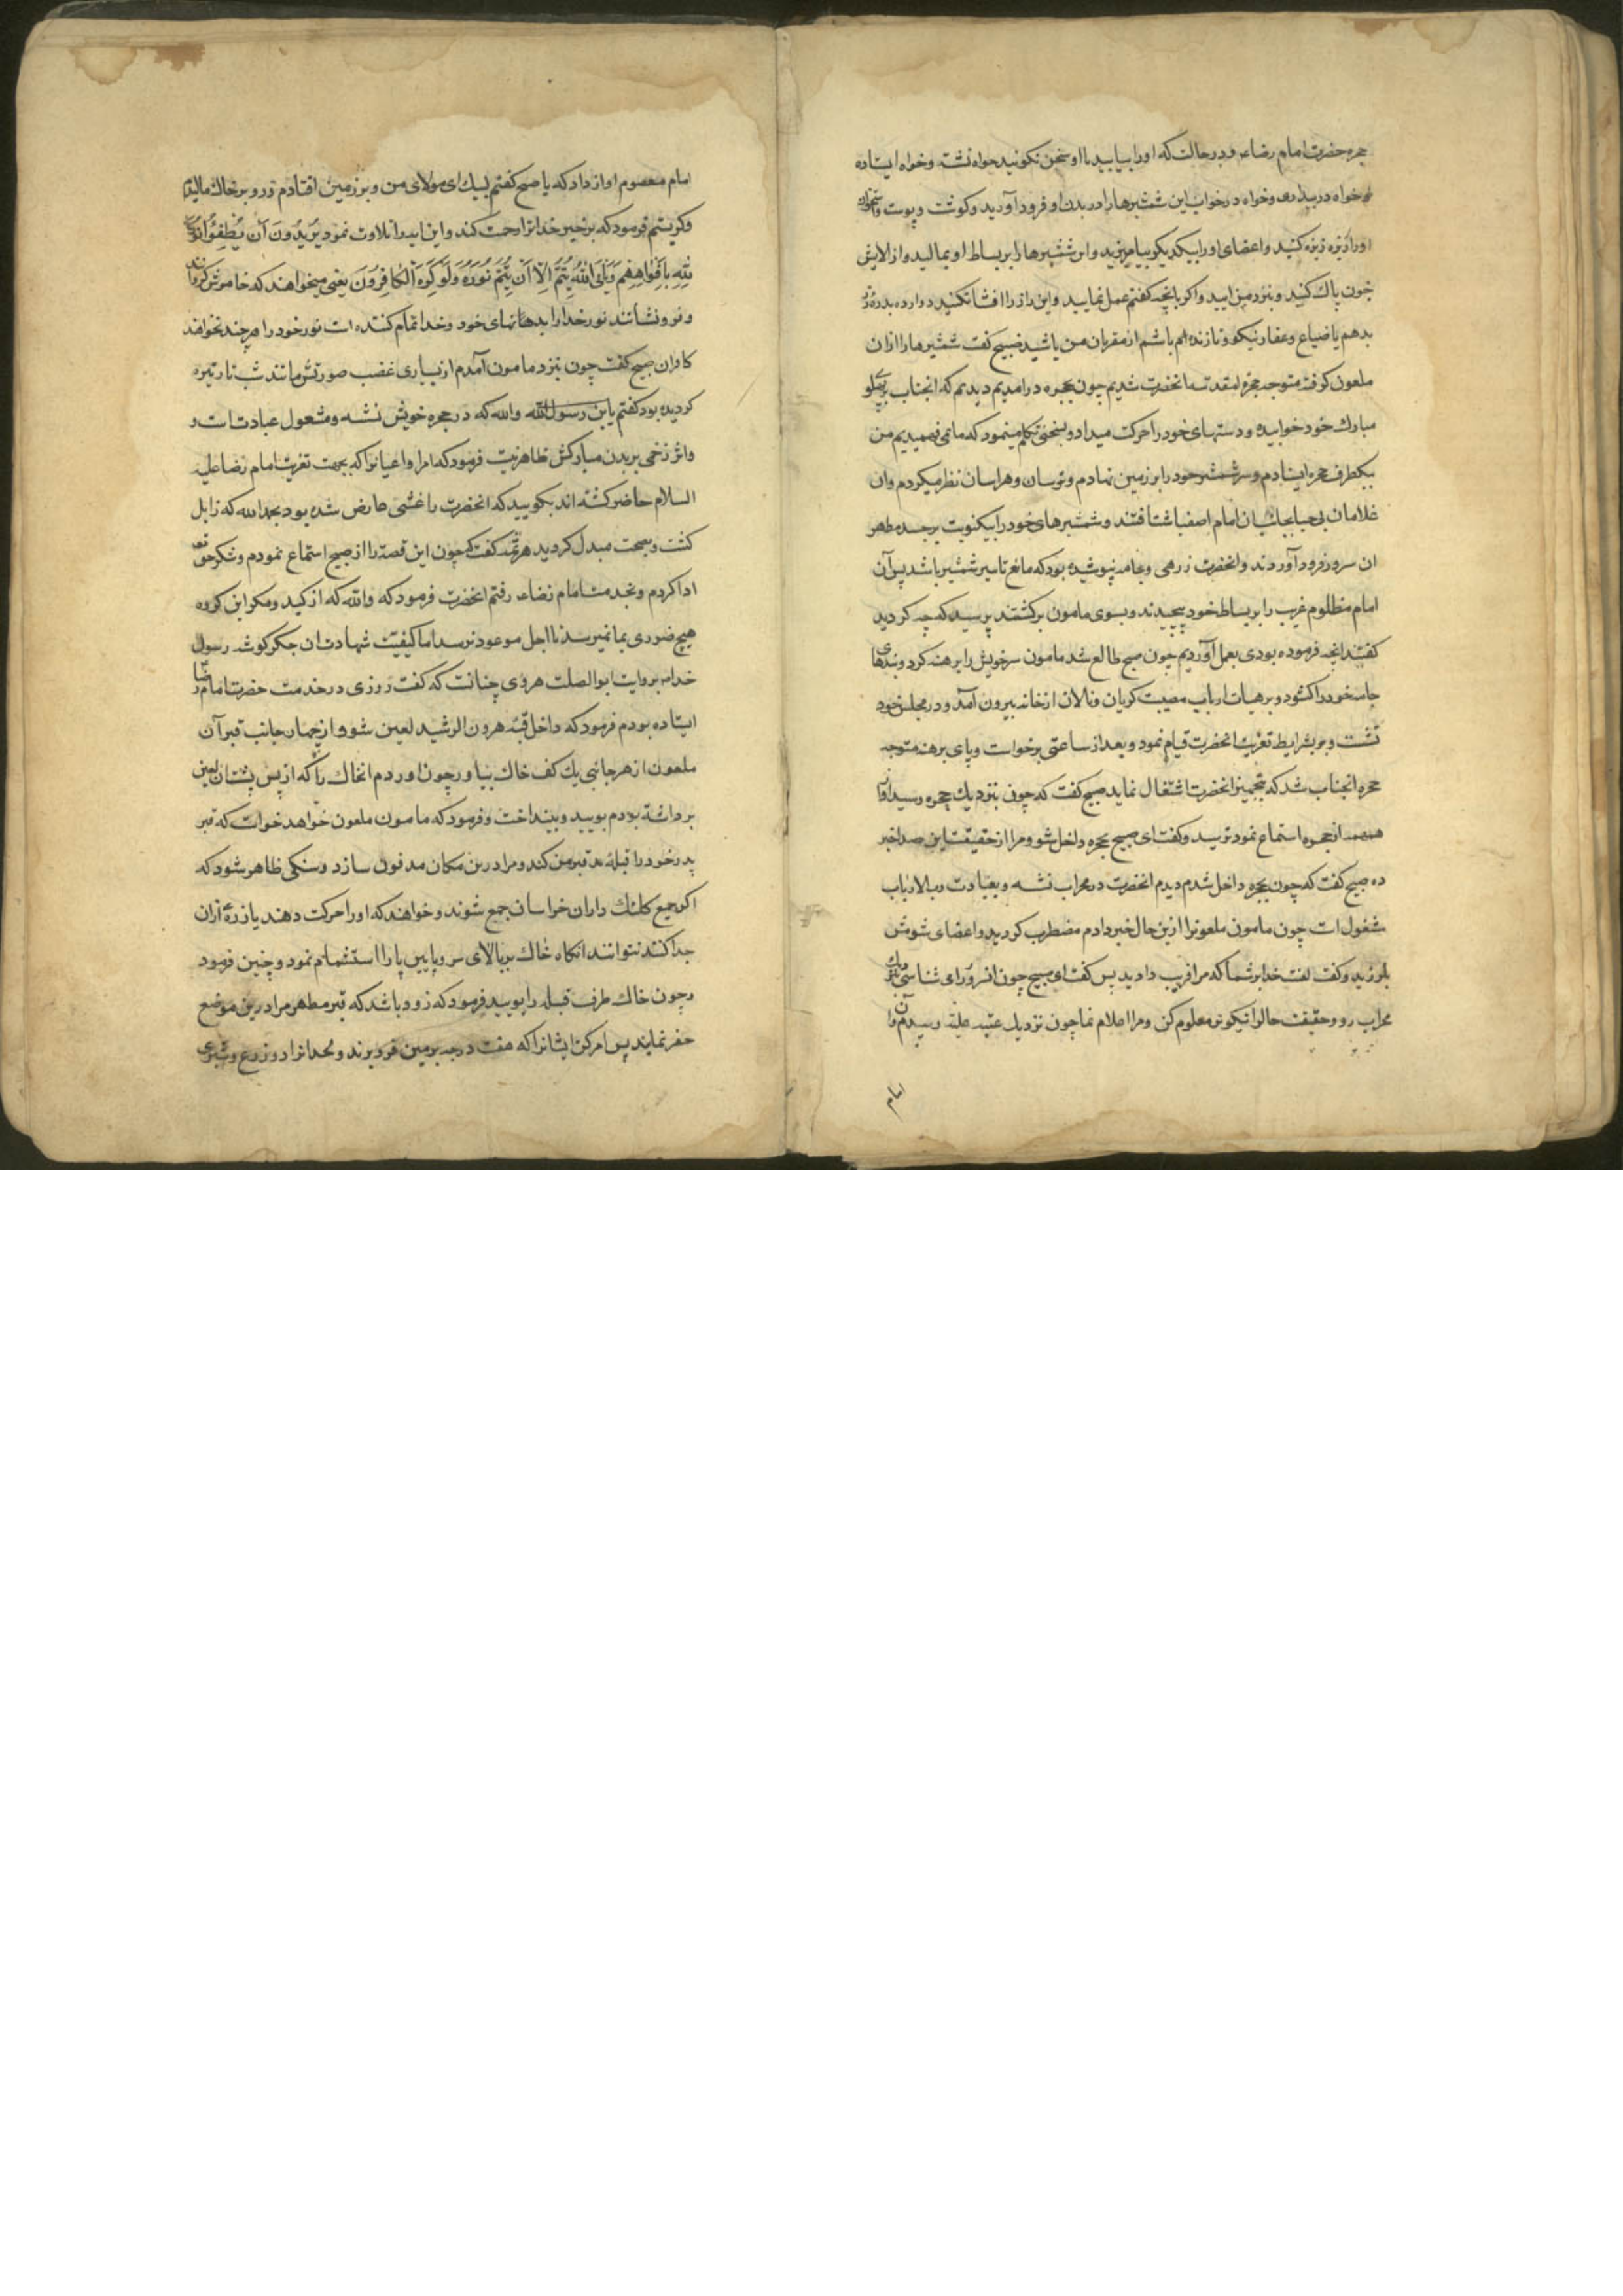 حجره حضرت امام رضاء رويد در حالت که او را بیابید با او سخن نکوئید خواه نشسته وخواه ایستاده
وخواه در بیداری وخواه در خواب این شمشیرها را در بدن او فرود آورید وکوشت وپوست واستخوان
او را ریزه ریزه کنید واعضای او را بیکدیکر بیامیزید واین شمشیرها را بر بساط او بمالید واز الایش
خون پاک کنید وبنزد من ایید واکر بانچه کفتم عمل نمایید واین راز را افشا نکنید دوازده بدره زر
بدهم یا ضیاع وعقار نیکو وتا زنده ام باشم از مقربان من باشید صبیح کفت شمشیرها را از ان
ملعون کرفته متوجه حجره مقدسه انحضرت شدیم چون بحجره در امدیم دیدیم که انجناب بر پهلو
مبارک خود خوابیده ودستهای خود را حرکت میداد وبسخنی تکلم مینمود که ما نمی فهمیدیم من
بیکطرف حجره ایستادم وسر شمشیر خود را بر زمین نهادم وترسان وهراسان نظر میکردم وان
غلامان بی حیا بجانب ان امام اصفیا شتافتند وشمشیرهای خود را بیکنوبت بر جسد مطهر
ان سرور فرود آوردند وانحضرت زرهی وجامه نپوشیده بود که مانع تاثیر شمشیر باشد پس آن
امام مظلوم غریب را بر بساط خود پیچیدند وبسوی مامون برکشتند پرسید که چه کردید
کفتند انچه فرموده بودی بعمل آوردیم چون صبح طالع شد مامون سر خویش را برهنه کرد وبندهای
جامه خود را کشود وبر هیات ارباب مصیبت کریان ونالان از خانه بیرون آمد ودر مجلس خود
نشست وبر شرایط تعزیت انحضرت قیام نمود وبعد از ساعتی برخواست وپای برهنه متوجه
حجره انجناب شد که بتجهیز انحضرت اشتغال نماید صبیح کفت که چون بنزدیک حجره رسید اواز
همهمه از حجره استماع نمود ترسید وکفت ای صبیح بحجره داخل شو ومرا از حقیقت این صدا خبر
ده صبیح کفت که چون بحجره داخل شدم دیدم انحضرت در محراب نشسته وبعبادت رب الارباب
مشغول است چون مامون ملعونرا ازین حال خبر دادم مضطرب کردید واعضای شومش
بلرزید وکفت لعنت خدا بر شما که مرا فریب دادید پس کفت ای صبیح چون انسرور را می شناسی بنزدیک
محراب رو وحقیقت حال را نیکوتر معلوم کن ومرا اعلام نما چون نزدیک عتبه علیه رسیدم آن
امام
امام معصوم اواز داد که یا صبیح کفتم لبیک ای مولای من وبر زمین افتادم ورو بر خاک مالیدم
وکریستم فرمود که برخیز خدا ترا رحمت کند واین ایه را تلاوت نمود یُریدُونَ اَن یُطفِئُوا نُورَ
اللّٰهِ بِاَفْواهِهِم وَیَأبَی اللّٰهُ اِلّا اَن یُتِمَّ نُورَهُ وَلَو کَرِهَ الکافِرُونَ یعنی میخواهند که خاموش کردانند
وفرو نشانند نور خدا را بدهانهای خود وخدا تمام کننده است نور خود را هر چند نخواهند
کافران صبیح کفت چون بنزد مامون آمدم از بسیاری غضب صورتش مانند شب تار تیره
کردیده بود کفتم یابن رسول الله والله که در حجره خویش نشسته ومشغول عبادتست و
واثر زخمی بر بدن مبارکش ظاهر نیست فرمود که امرا واعیانرا که بجهت تعزیت امام رضا علیه
السلام حاضر کشته اند بکویید که انحضرت را غشی عارض شده بود بحمد الله که زایل
کشت وبصحت مبدل کردید هرثمه کفت که چون این قصه را از صبیح استماع نمودم وشکر حق تعالی
ادا کردم وبخدمت امام رضاء رفتم انحضرت فرمود که والله که از کید ومکر این کروه
هیچ ضرری بما نمیرسد تا اجل موعود نرسد اما کیفیت شهادت ان جکر کوشه رسول
خدا بروایت ابوالصلت هروی چنانست که کفت روزی در خدمت حضرت امام رضا
ایستاده بودم فرمود که داخل قبه هرون الرشید لعین شو واز چهار جانب قبر آن
ملعون از هر جانبی یک کف خاک بیاور چون اوردم انخاک را که از پس پشت ان لعین
برداشته بودم بویید وبینداخت وفرمود که مامون ملعون خواهد خواست که قبر
پدر خود را قبله قبر من کند ومرا درین مکان مدفون سازد وسنکی ظاهر شود که
اکر جمیع کلنک داران خراسان جمع شوند وخواهند که او را حرکت دهند یا ذره از ان
جدا کنند نتوانند انکاه خاک بربالای سر وپایین پا را استشمام نمود وچنین فرمود
وچون خاک طرف قبله را بویید فرمود که زود باشد که قبر مطهر مرا درین موضع
حفر نمایند پس امر کن ایشانرا که هفت درجه بزمین فرو برند ولحد انرا دو زرع وشبری